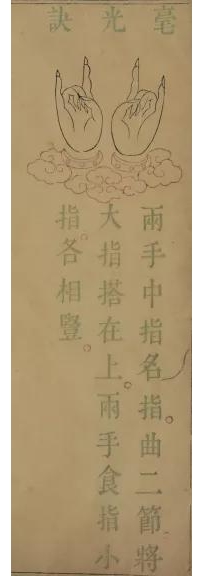 毫光訣
兩手中指名指。曲二節將
大指搭在上。兩手食指小
指。各相豎。